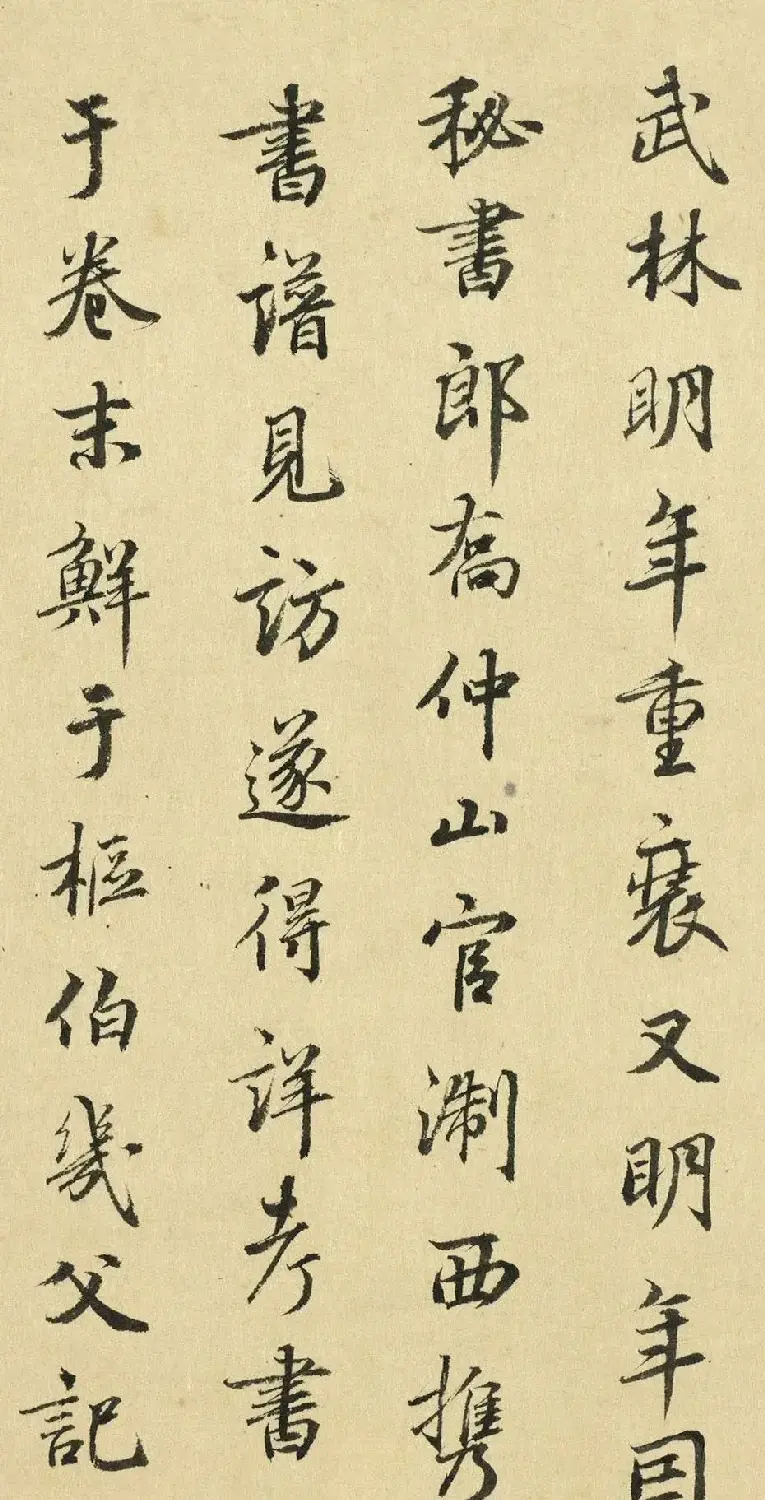 武林明年重裝又明年囙
秘書郎喬仲山官淛西携
書譜見訪遂得詳考書
于卷末鮮于樞伯幾父記